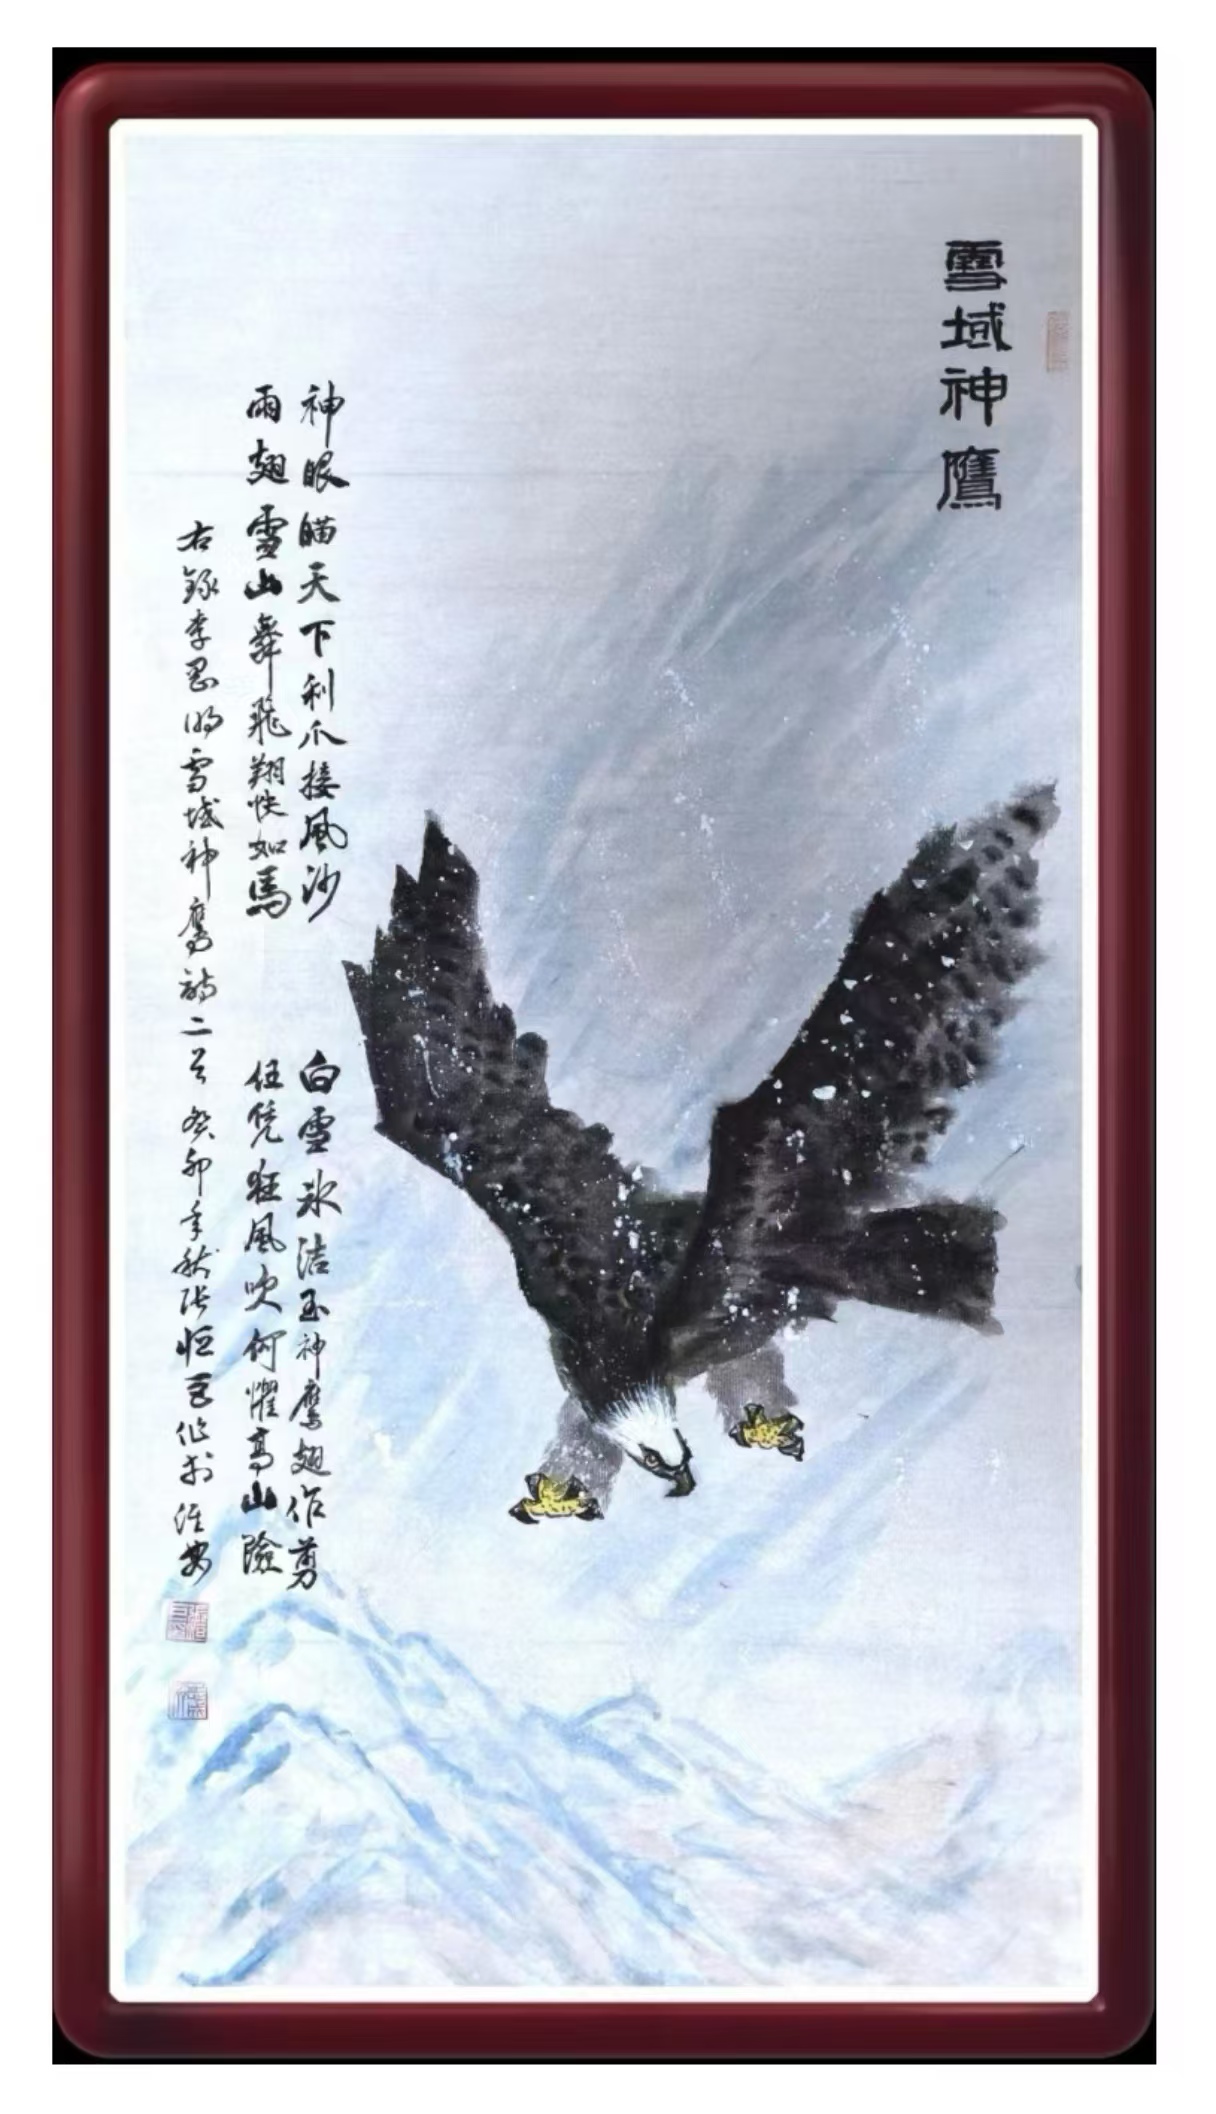 雪域神鷹
神眼瞄天下利爪接風沙
雨翅雪山舞飛翔快如馬
白雪冰洁玉神鹰翅作剪
任凭狂風吹何懼高山險
右録李思明雪域神鹰诗二首癸卯年秋张恒 作於淮安